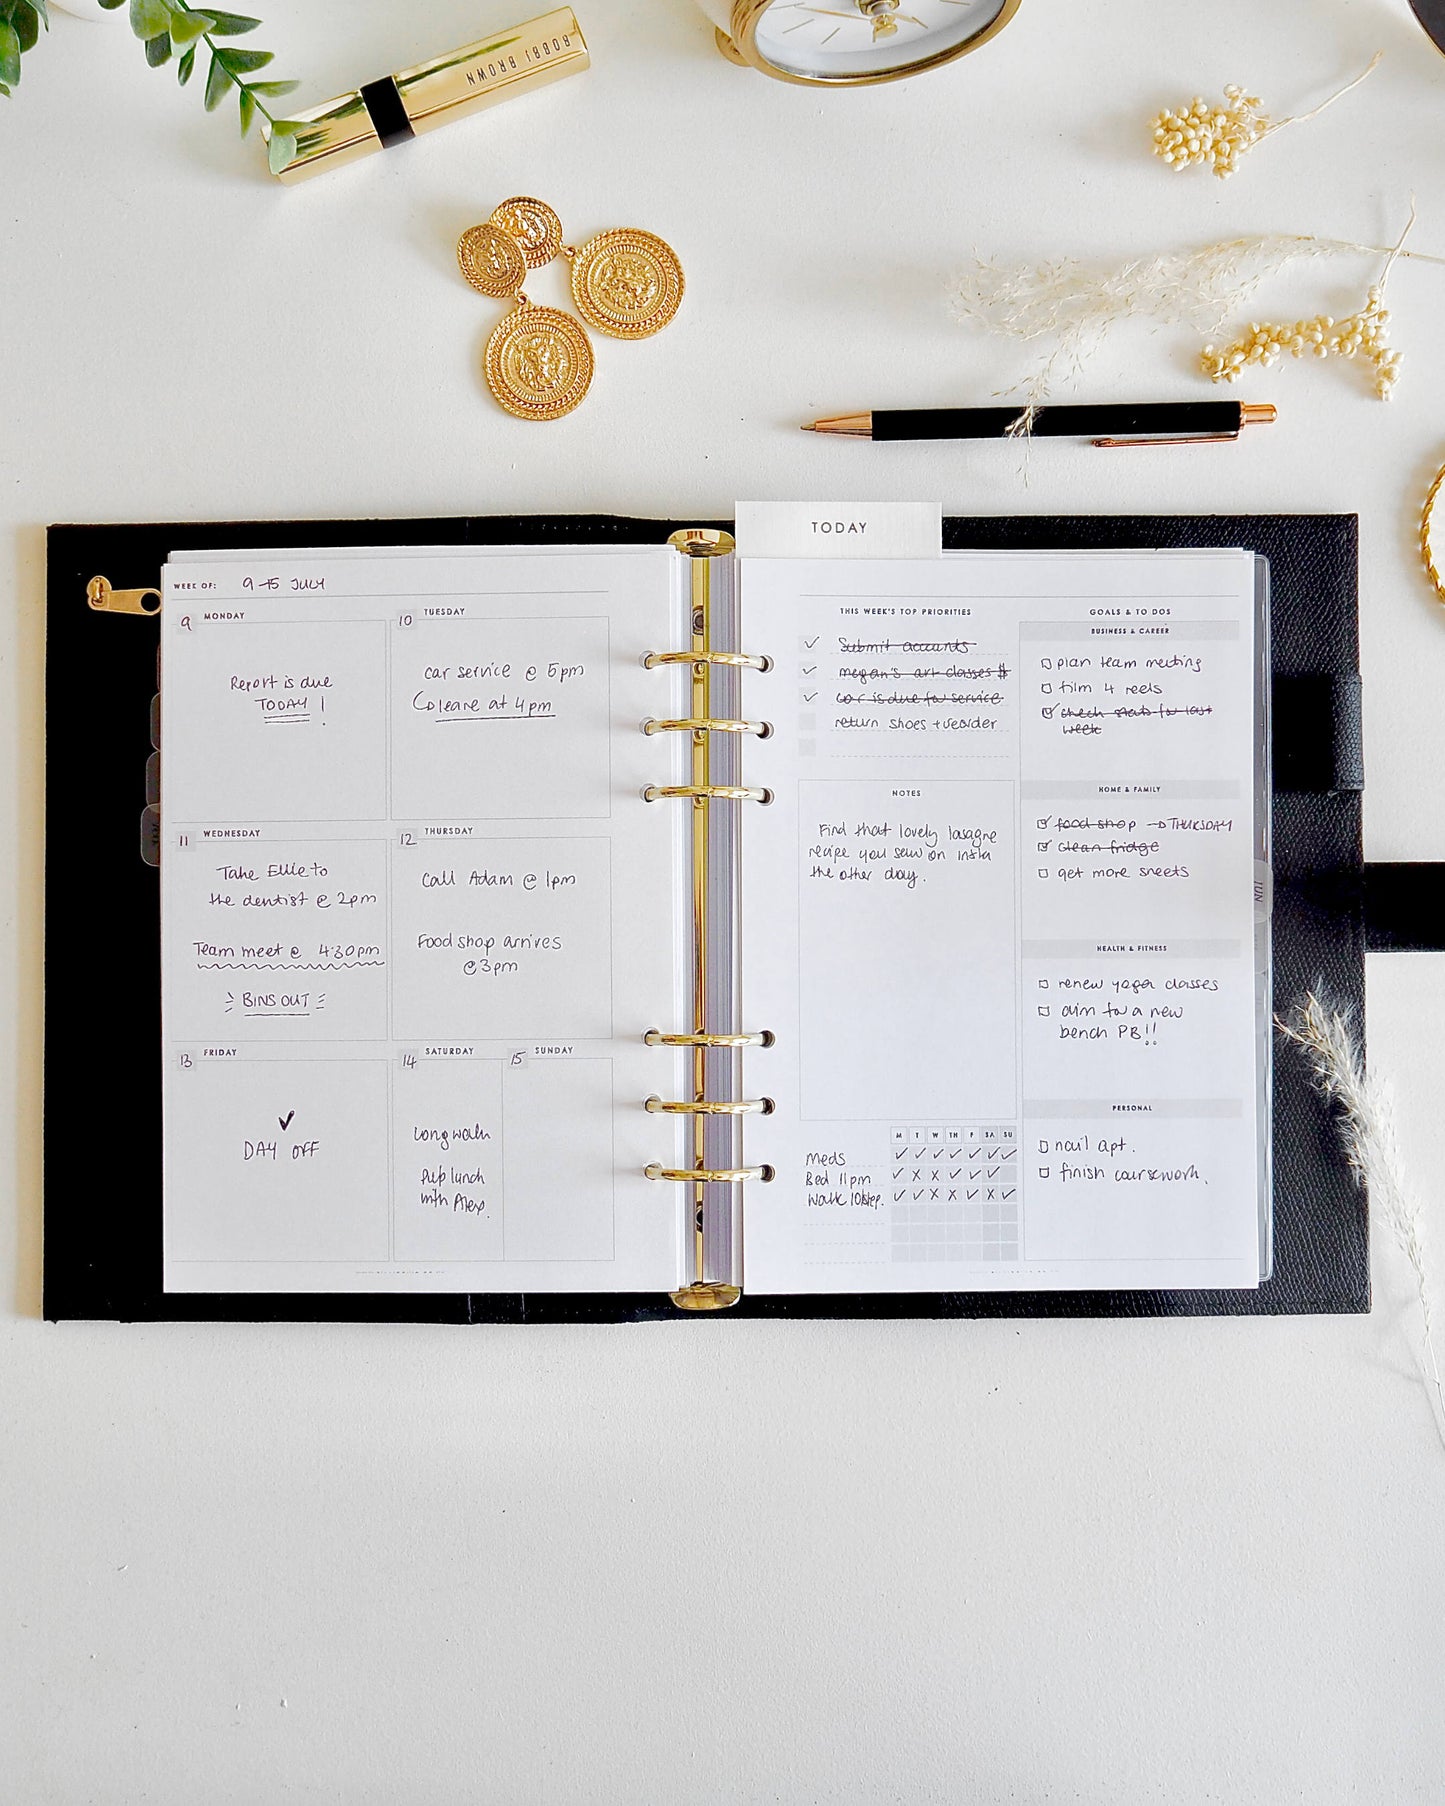 BOBBI BROWN
TODAY
WEEK OF: 9-15 JULY
9 MONDAY
Report is due
TODAY !
10 TUESDAY
car service @ 5pm
leave at 4pm
11 WEDNESDAY
Take Ellie to
the dentist @ 2pm
Team meet @ 4:30pm
BINS OUT
12 THURSDAY
Call Adam @ 1pm
Food shop arrives
@3pm
13 FRIDAY
✓
DAY OFF
14 SATURDAY
Long walk
Pub lunch
with Alex.
15 SUNDAY
THIS WEEK'S TOP PRIORITIES
✓ Submit accounts
✓ megan's art classes $
✓ car is due for service
return shoes + reorder
NOTES
Find that lovely lasagne
recipe you saw on insta
the other day.
M T W TH F SA SU
Meds ✓ ✓ ✓ ✓ ✓ ✓ ✓
Bed 11pm ✓ X X ✓ ✓ ✓
Walk 10kstep. ✓ ✓ X X ✓ X ✓
GOALS & TO DOS
BUSINESS & CAREER
plan team meeting
film 4 reels
check stats for last
week
HOME & FAMILY
food shop → THURSDAY
clean fridge
get more sheets
HEALTH & FITNESS
renew yoga classes
aim for a new
bench PB!!
PERSONAL
nail apt.
finish coursework.
JUN